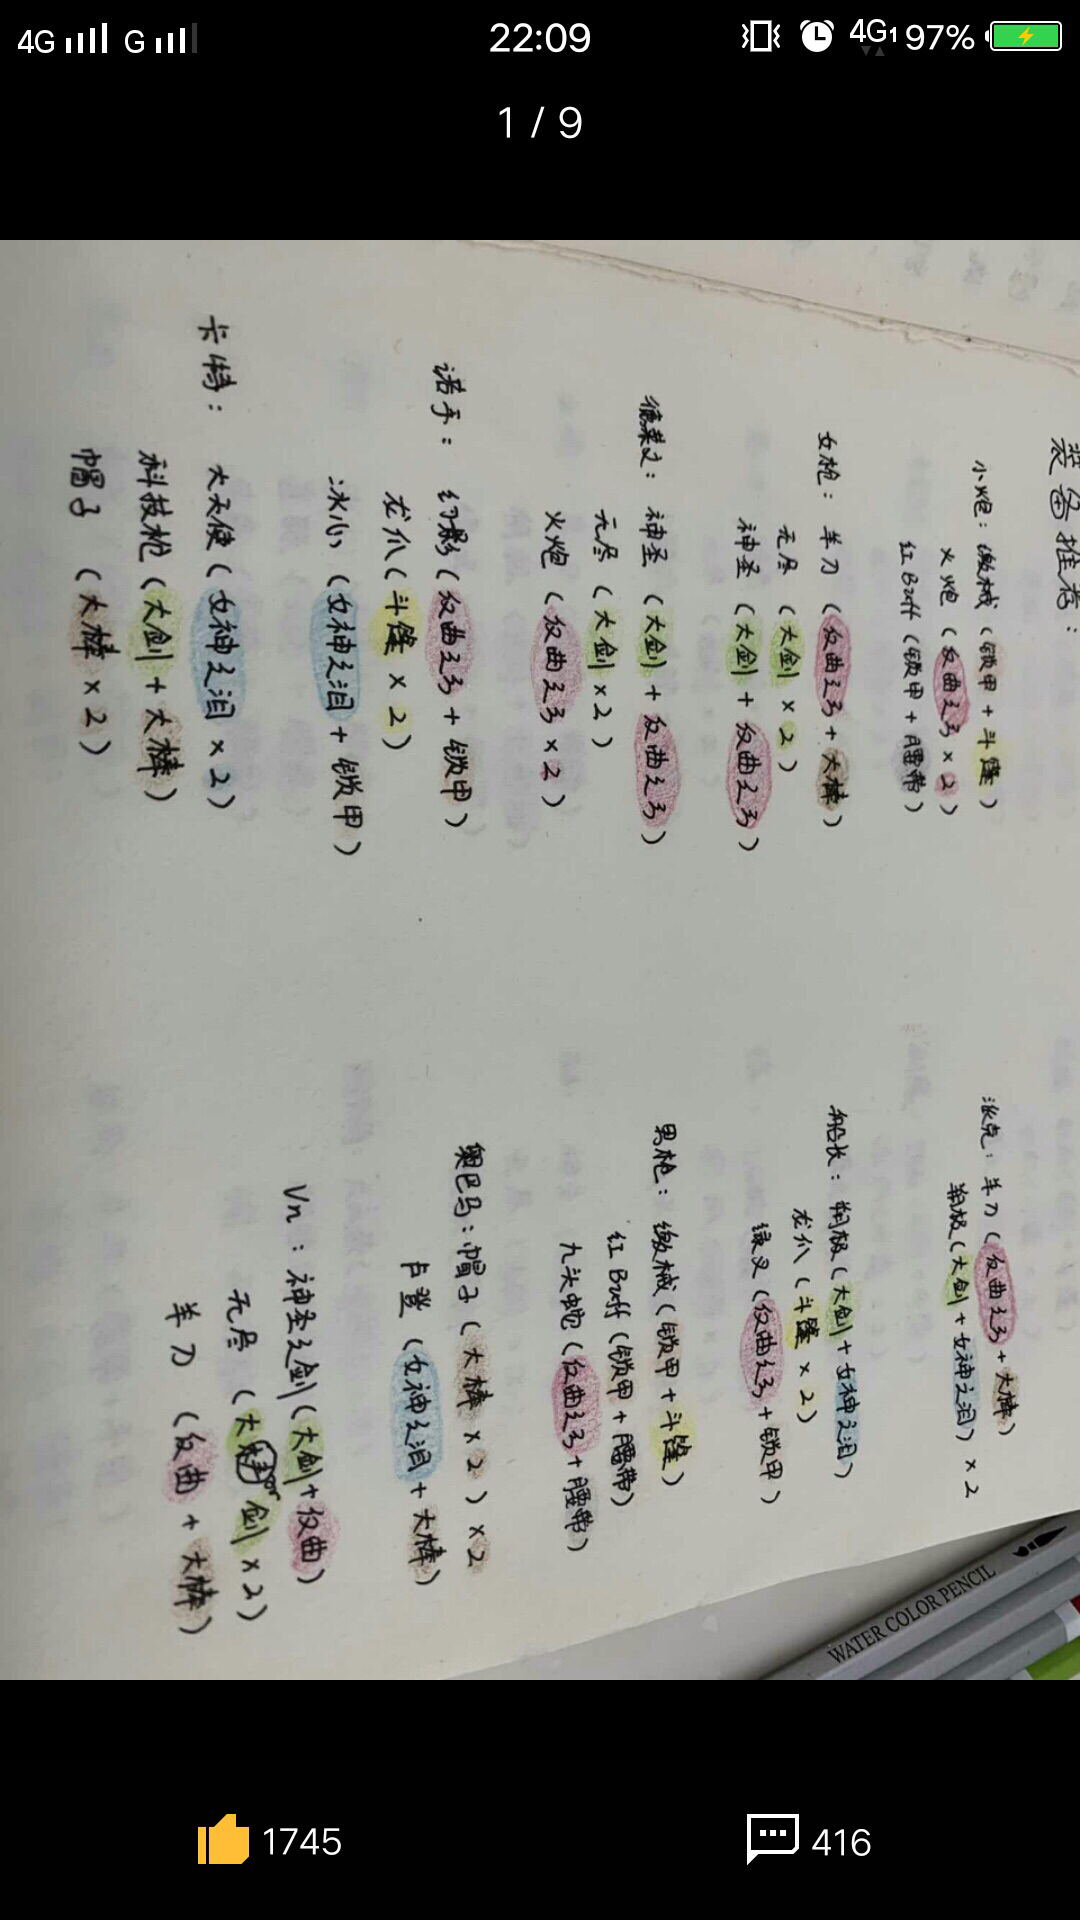 4G G 22:09 4G1 97%
1 / 9
装备推荐:
小炮: 缴械 (锁甲 + 斗篷)
火炮 (反曲之弓 × 2)
红Buff (锁甲 + 腰带)
女枪: 羊刀 (反曲之弓 + 大棒)
无尽 (大剑 × 2)
神圣 (大剑 + 反曲之弓)
德莱文: 神圣 (大剑 + 反曲之弓)
无尽 (大剑 × 2)
火炮 (反曲之弓 × 2)
诺手: 幻影 (反曲之弓 + 锁甲)
龙爪 (斗篷 × 2)
冰心 (女神之泪 + 锁甲)
卡特: 大天使 (女神之泪 × 2)
科技枪 (大剑 + 大棒)
帽子 (大棒 × 2)
派克: 羊刀 (反曲之弓 + 大棒)
朔极 (大剑 + 女神之泪) × 2
船长: 朔极 (大剑 + 女神之泪)
龙爪 (斗篷 × 2)
绿叉 (反曲之弓 + 锁甲)
男枪: 缴械 (锁甲 + 斗篷)
红Buff (锁甲 + 腰带)
九头蛇 (反曲之弓 + 腰带)
奥巴马: 帽子 (大棒 × 2) × 2
卢登 (女神之泪 + 大棒)
Vn: 神圣之剑 (大剑 + 反曲)
无尽 (大剑 × 2)
羊刀 (反曲 + 大棒)
WATER COLOR PENCIL
1745 416